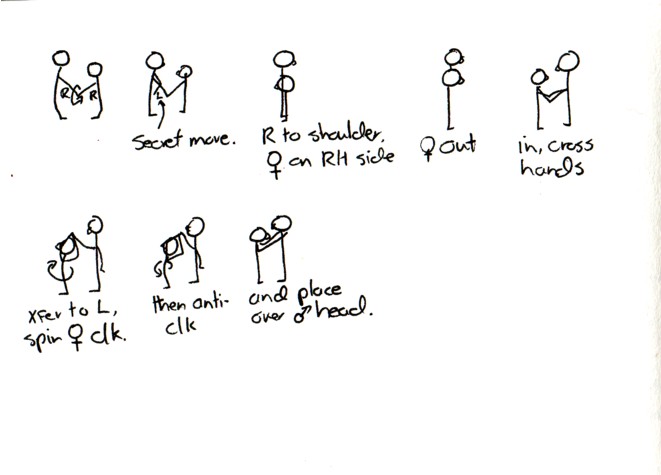 R R
L
Secret move.
R to shoulder.
♀ on RH side
♀ out
in, cross
hands
xfer to L,
spin ♀ clk.
then anti-
clk
and place
over ♂ head.